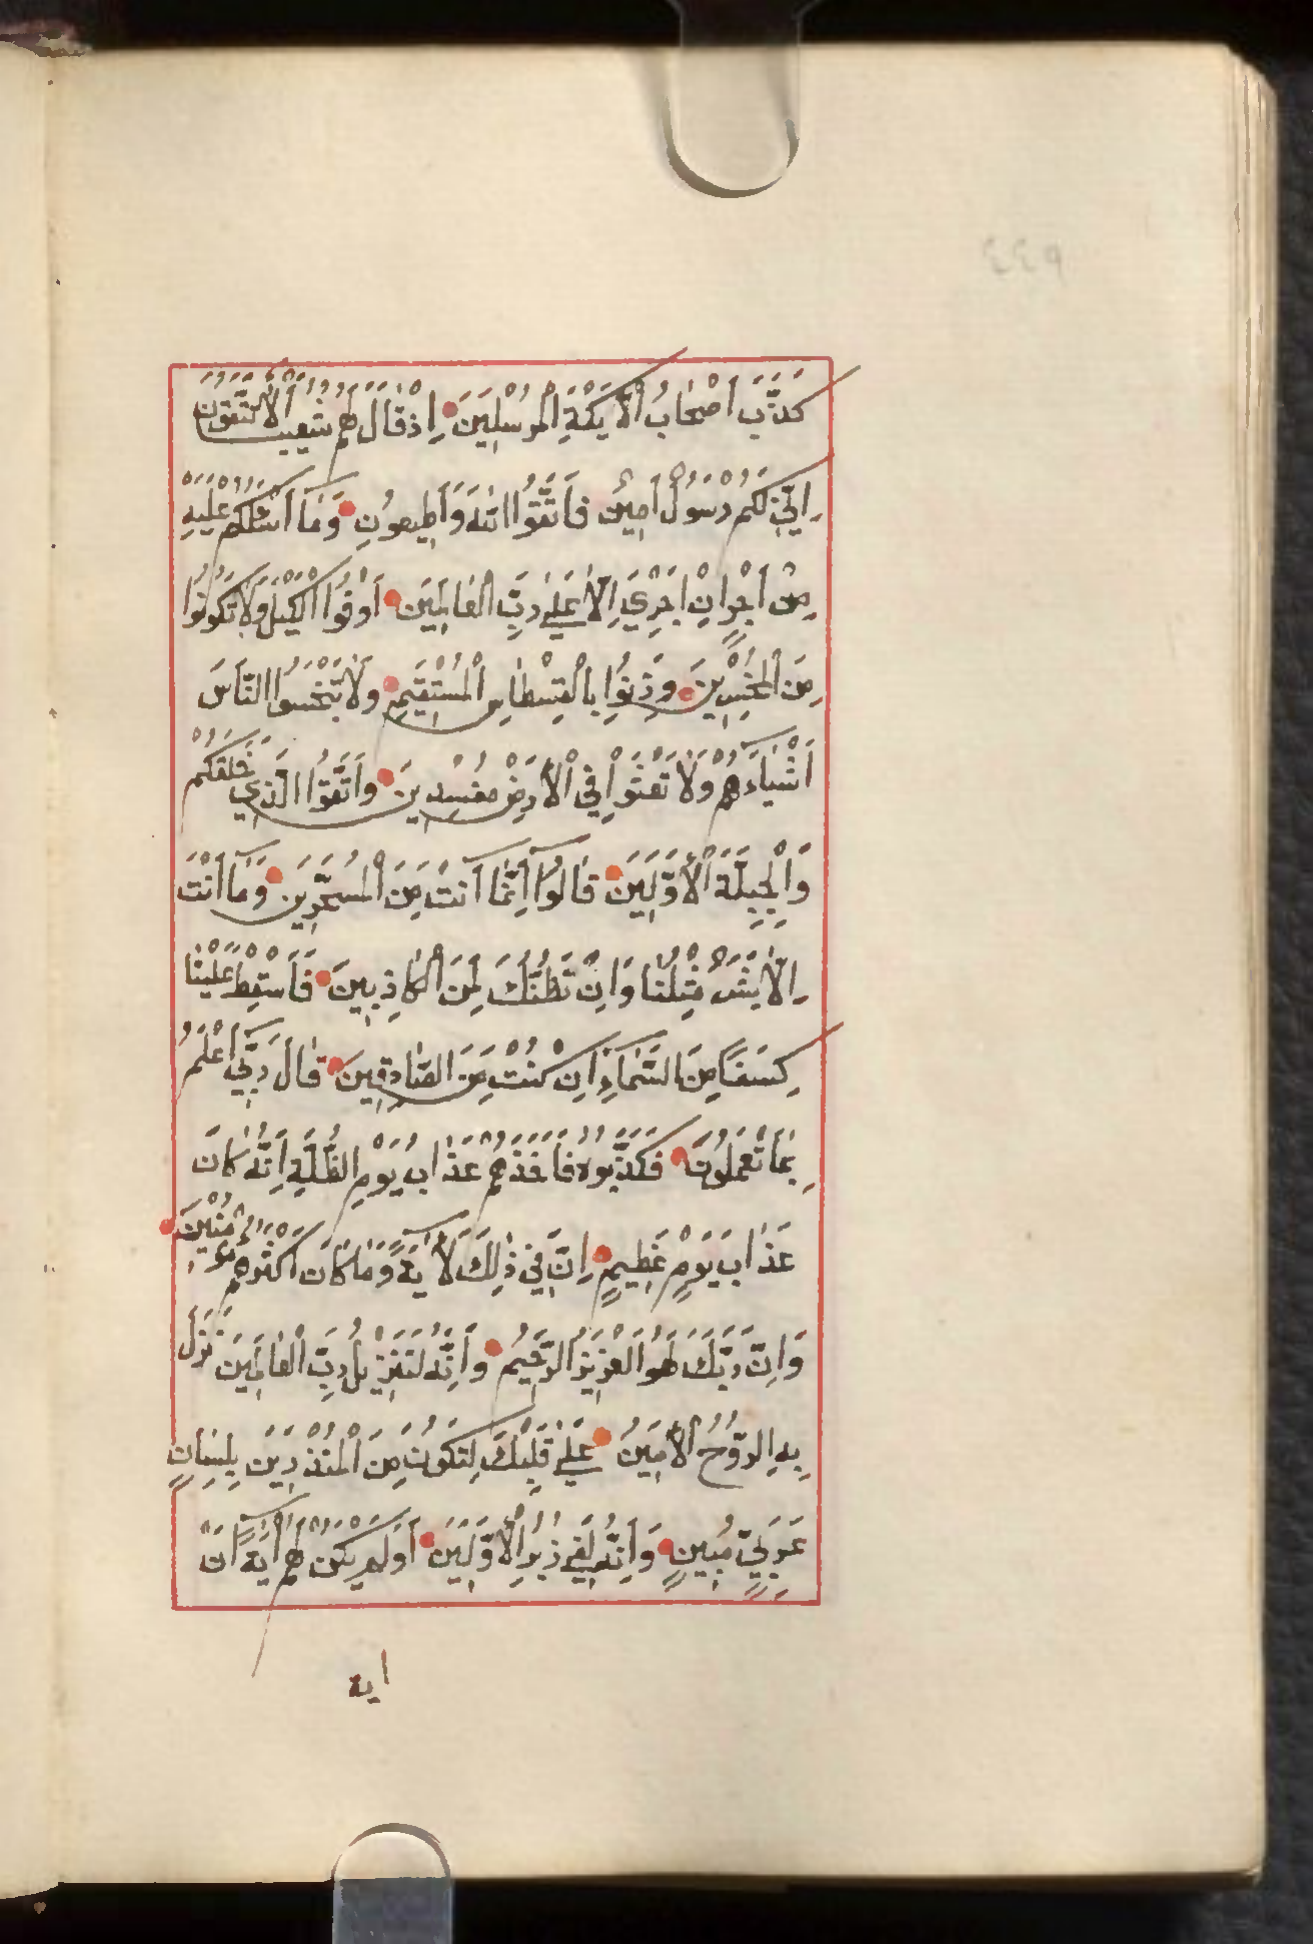 كَذَّبَ اَصْحَابُ الْاَيْكَةِ الْمُرْسَلِينَ اِذْ قَالَ لَهُمْ شُعَيْبٌ اَلَا تَتَّقُونَ
اِنِّي لَكُمْ رَسُولٌ اَمِينٌ فَاتَّقُوا اللّٰهَ وَاَطِيعُونِ وَمَا اَسْئَلُكُمْ عَلَيْهِ
مِنْ اَجْرٍ اِنْ اَجْرِيَ اِلَّا عَلٰى رَبِّ الْعَالَمِينَ اَوْفُوا الْكَيْلَ وَلَا تَكُونُوا
مِنَ الْمُخْسِرِينَ وَزِنُوا بِالْقِسْطَاسِ الْمُسْتَقِيمِ وَلَا تَبْخَسُوا النَّاسَ
اَشْيَاءَهُمْ وَلَا تَعْثَوْا فِي الْاَرْضِ مُفْسِدِينَ وَاتَّقُوا الَّذِي خَلَقَكُمْ
وَالْجِبِلَّةَ الْاَوَّلِينَ قَالُوا اِنَّمَا اَنْتَ مِنَ الْمُسَحَّرِينَ وَمَا اَنْتَ
اِلَّا بَشَرٌ مِثْلُنَا وَاِنْ نَظُنُّكَ لَمِنَ الْكَاذِبِينَ فَاَسْقِطْ عَلَيْنَا
كِسَفًا مِنَ السَّمَاءِ اِنْ كُنْتَ مِنَ الصَّادِقِينَ قَالَ رَبِّي اَعْلَمُ
بِمَا تَعْمَلُونَ فَكَذَّبُوهُ فَاَخَذَهُمْ عَذَابُ يَوْمِ الظُّلَّةِ اِنَّهُ كَانَ
عَذَابَ يَوْمٍ عَظِيمٍ اِنَّ فِي ذٰلِكَ لَاٰيَةً وَمَا كَانَ اَكْثَرُهُمْ مُؤْمِنِينَ
وَاِنَّ رَبَّكَ لَهُوَ الْعَزِيزُ الرَّحِيمُ وَاِنَّهُ لَتَنْزِيلُ رَبِّ الْعَالَمِينَ نَزَلَ
بِهِ الرُّوحُ الْاَمِينُ عَلٰى قَلْبِكَ لِتَكُونَ مِنَ الْمُنْذِرِينَ بِلِسَانٍ
عَرَبِيٍّ مُبِينٍ وَاِنَّهُ لَفِي زُبُرِ الْاَوَّلِينَ اَوَلَمْ يَكُنْ لَهُمْ اٰيَةً اَنْ
اية